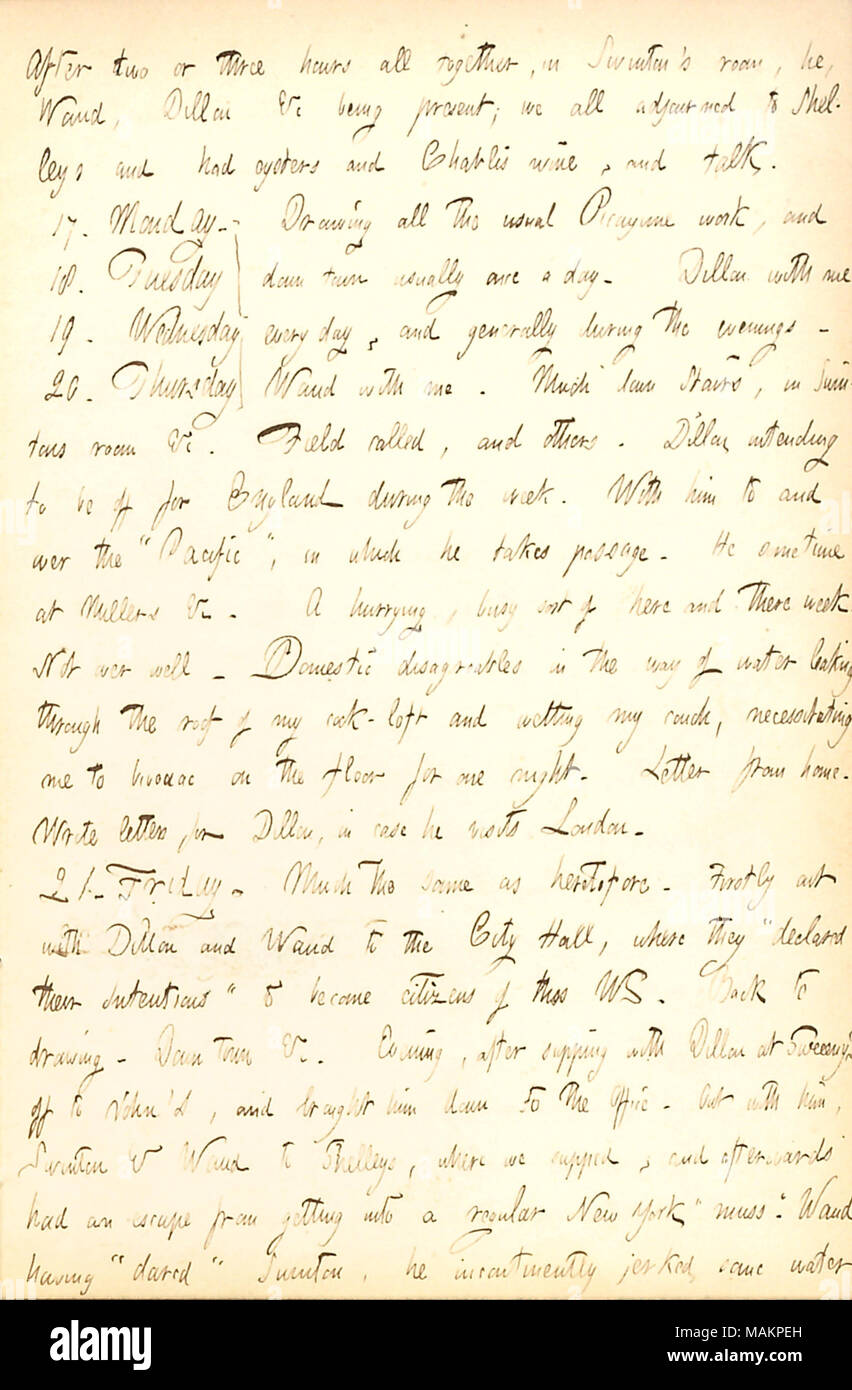 After two or three hours all together, in Swinton's room, he,
Waud, Dillon &c being present; we all adjourned to Shel-
leys and had oysters and Chablis wine, and talk.
17. Monday. Drawing all the usual Picayune work, and
18. Tuesday down town usually once a day. Dillon with me
19. Wednesday every day, and generally during the evenings.
20. Thursday Waud with me. Much down stairs, in Swin-
tons room &c. Field called, and others. Dillon intending
to be off for England during the week. With him to and
over the "Pacific", in which he takes passage. He sometime
at Millers &c. A hurrying, busy sort of here and there week
Not over well. Domestic disagreeables in the way of water leaking
through the roof of my cock-loft and wetting my couch, necessitating
me to bivouac on the floor for one night. Letter from home.
Write letters for Dillon, in case he visits London.
21. Friday. Much the same as heretofore. Firstly out
with Dillon and Waud to the City Hall, where they "declared
their intentions" to become citizens of this US. Back to
drawing. Down town &c. Evening, after supping with Dillon at Sweeny's
off to John's, and brought him down to the office. Out with him,
Swinton & Waud to Shelleys, where we supped, and afterwards
had an escape from getting into a regular New York "muss". Waud
having "dared" Swinton, he incontinently jerked some water
alamy
Image ID: MAKPEH
www.alamy.com